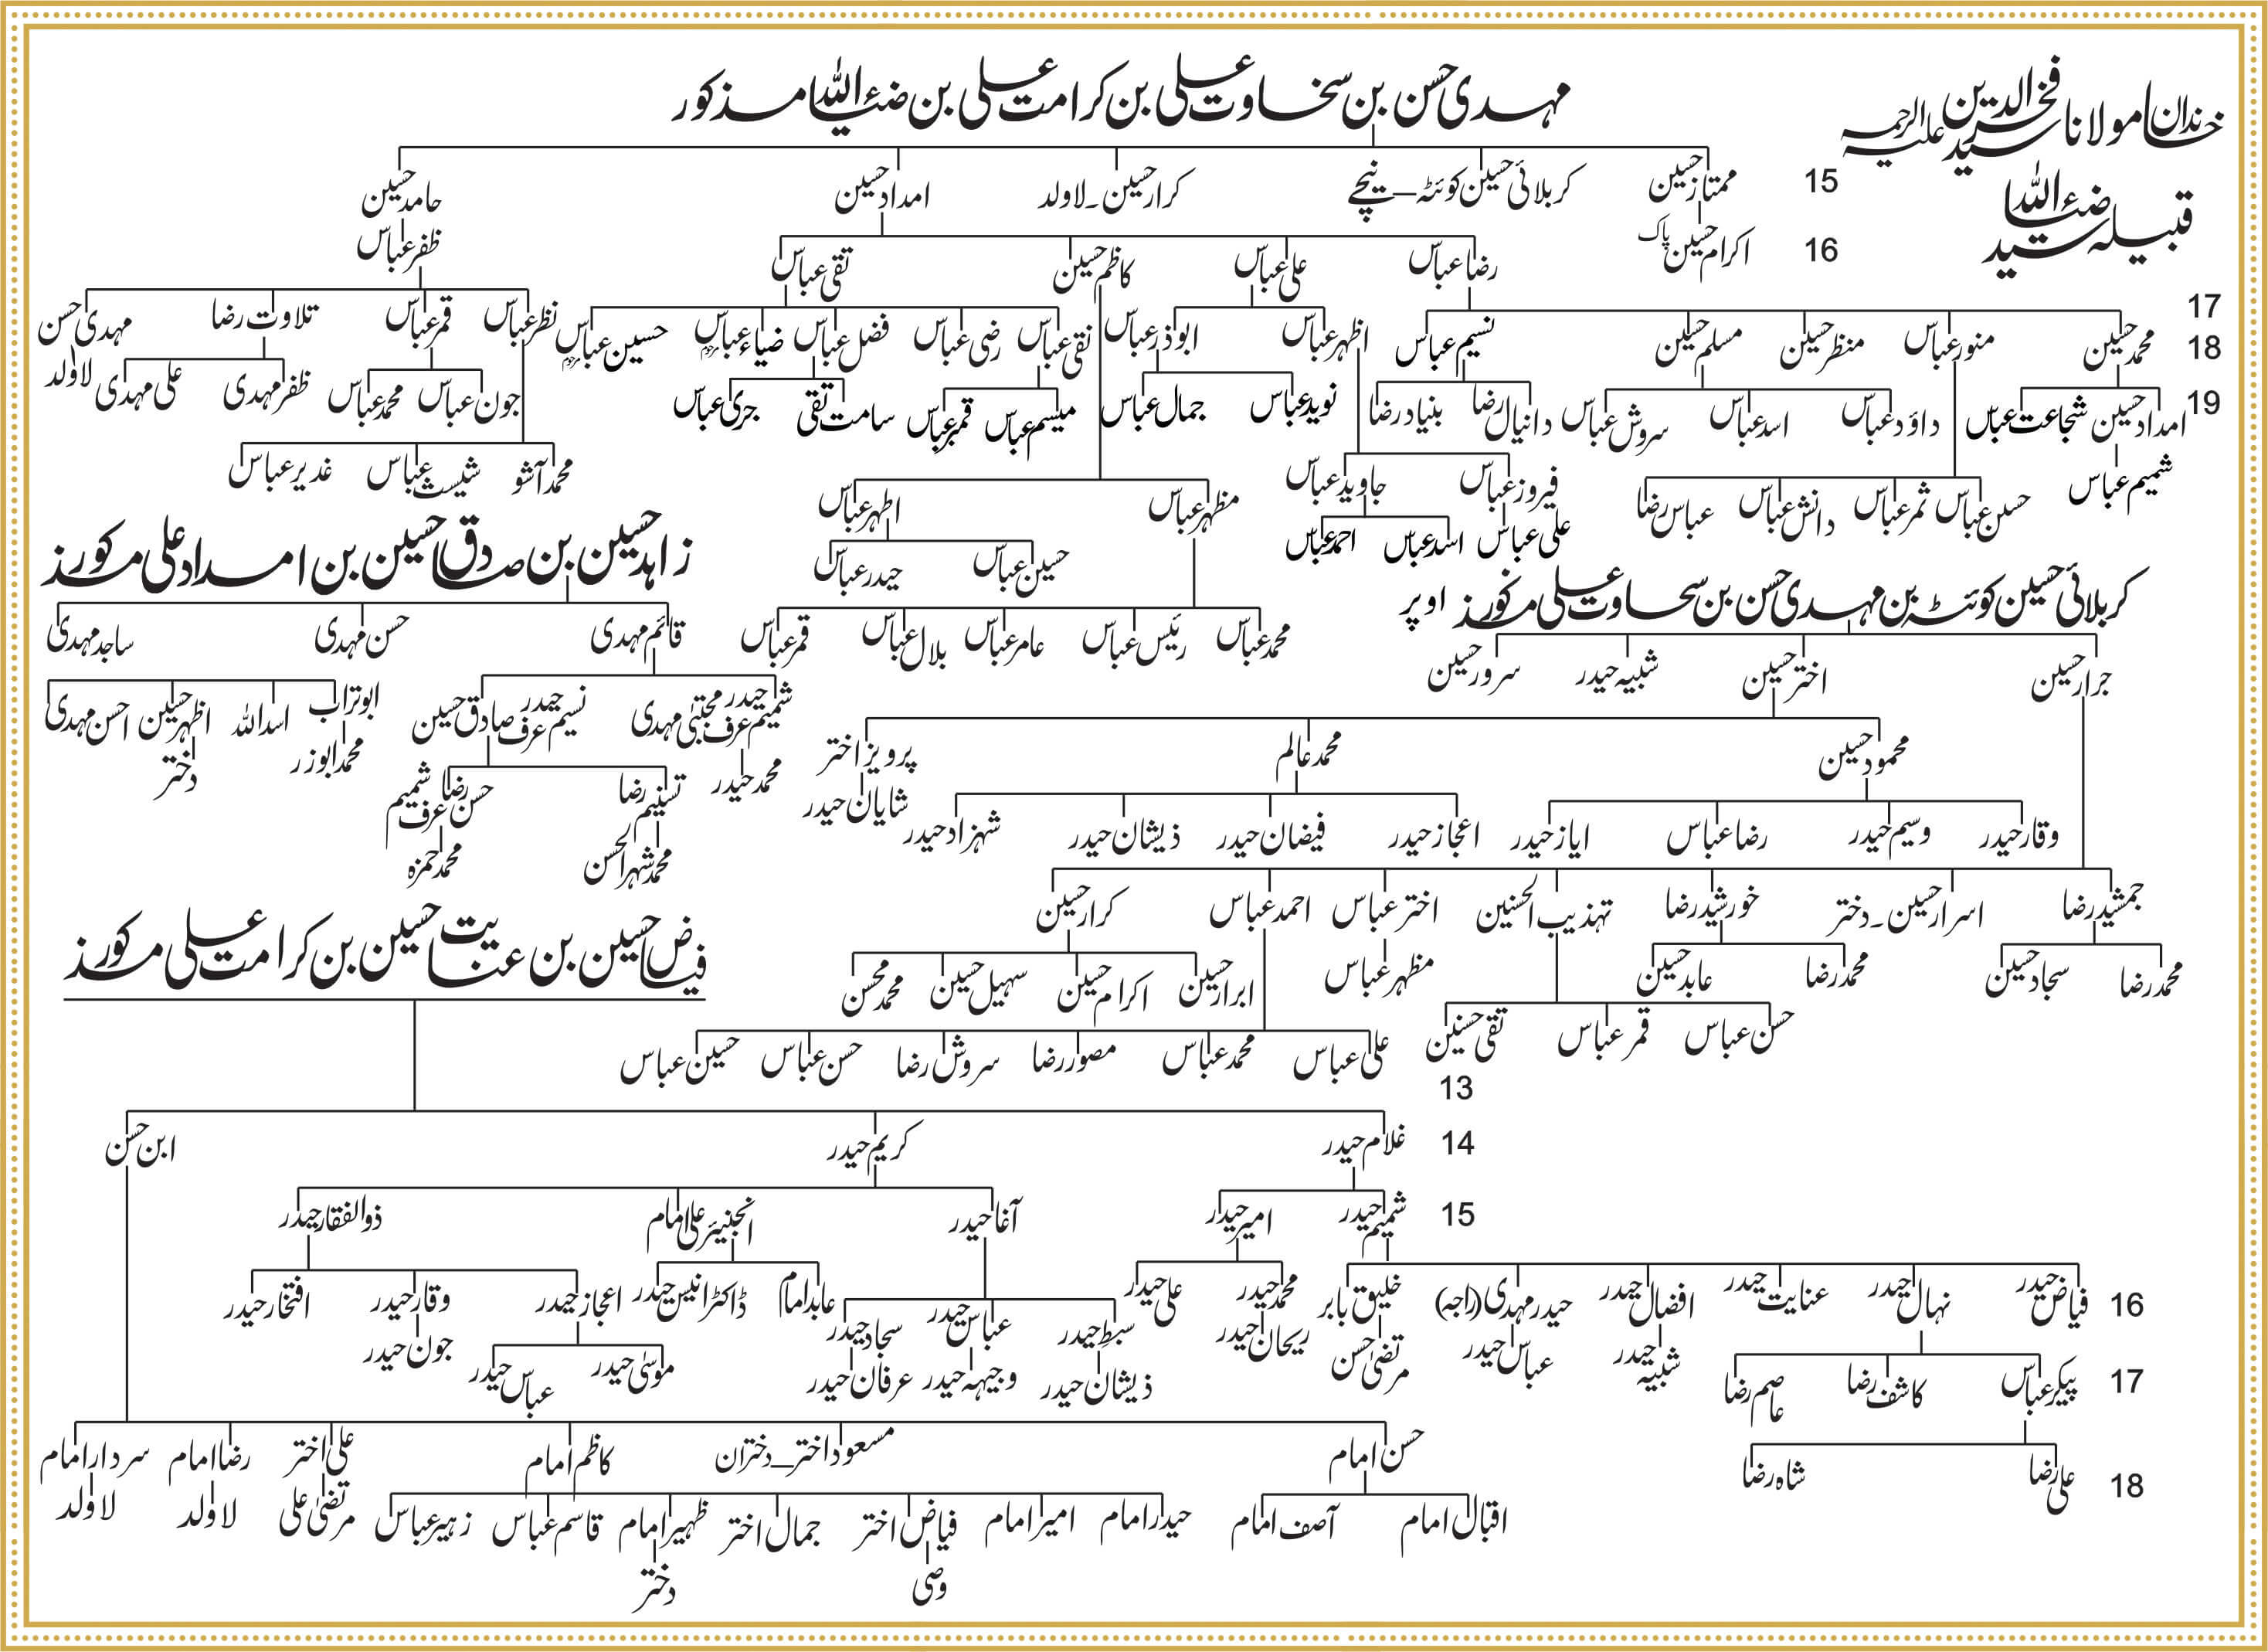 خاندان مولانا سید فخر الدین علیہ الرحمہ
قبیلہ سید ضیاء اللہ
مہدی حسن بن سخاوت علی بن کرامت علی بن ضیاء اللہ مذکور
15 ممتاز حسین کربلائی حسین کوئٹہ – نیچے کرار حسین - لاولد امداد حسین حامد حسین
16 اکرام حسین پاک رضا عباس علی عباس کاظم حسین تقی عباس ظفر عباس
17
18 محمد حسین منور عباس منظر حسین مسلم حسین نسیم عباس اظہر عباس ابوذر عباس نقی عباس رضی عباس فضل عباس ضیاء عباس حسین عباس نظر عباس قمر عباس تلاوت رضا مہدی حسن لاولد
19 امداد حسین شجاعت عباس داؤد عباس اسد عباس سروش عباس دانیال رضا بنیاد رضا نوید عباس جمال عباس میسم عباس قمر عباس سامت تقی جری عباس جون عباس محمد عباس ظفر مہدی علی مہدی
شمیم عباس حسن عباس ثمر عباس دانش عباس عباس رضا فیروز عباس جاوید عباس مظہر عباس اطہر عباس محمد آشو شیث عباس غدیر عباس
علی عباس اسد عباس احمد عباس حسین عباس حیدر عباس
محمد عباس رئیس عباس عامر عباس بلال عباس قمر عباس
زاہد حسین بن صادق حسین بن امداد علی مذکور
قائم مہدی حسن مہدی ساجد مہدی
شمیم حیدر عرف مجتبیٰ مہدی نسیم حیدر عرف صادق حسین ابوتراب اسد اللہ اظہر حسین احسن مہدی
محمد حیدر تسنیم رضا حسن رضا عرف شمیم محمد ابوزر دختر
محمد شہر الحسن محمد حمزہ
کربلائی حسین کوئٹہ بن مہدی حسن بن سخاوت علی مذکور اوپر
جرار حسین اختر حسین شبیہ حیدر سرور حسین
محمود حسین محمد عالم پرویز اختر
وقار حیدر وسیم حیدر رضا عباس ایاز حیدر اعجاز حیدر فیضان حیدر ذیشان حیدر شہزاد حیدر شایان حیدر
جمشید رضا اسرار حسین - دختر خورشید رضا تہذیب الحسنین اختر عباس احمد عباس کرار حسین
محمد رضا سجاد حسین محمد رضا عابد حسین مظہر عباس ابرار حسین اکرام حسین سہیل حسین محمد محسن
حسن عباس قمر عباس تقی حسنین
علی عباس محمد عباس مصور رضا سروش رضا حسن عباس حسین عباس
فیاض حسین بن عنایت حسین بن کرامت علی مذکور
13
14 غلام حیدر کریم حیدر ابن حسن
15 شمیم حیدر امیر حیدر آغا حیدر انجنیئر علی امام ذوالفقار حیدر
16 فیاض حیدر نہال حیدر عنایت حیدر افضال حیدر حیدر مہدی (راجہ) خلیق بابر محمد حیدر علی حیدر سبط حیدر عباس حیدر سجاد حیدر عابد امام ڈاکٹر انیس حیدر اعجاز حیدر وقار حیدر افتخار حیدر
17 پیکر عباس کاشف رضا عاصم رضا شبیہ حیدر عباس حیدر مرتضیٰ حسن ریحان حیدر ذیشان حیدر وجیہہ حیدر عرفان حیدر موسیٰ حیدر عباس حیدر جون حیدر
18 علی رضا شاہ رضا
حسن امام مسعود اختر – دختران کاظم امام علی اختر رضا امام سردار امام
اقبال امام آصف امام حیدر امام امیر امام فیاض اختر جمال اختر ظہیر امام قاسم عباس زہیر عباس مرتضیٰ علی لاولد لاولد
وصی دختر